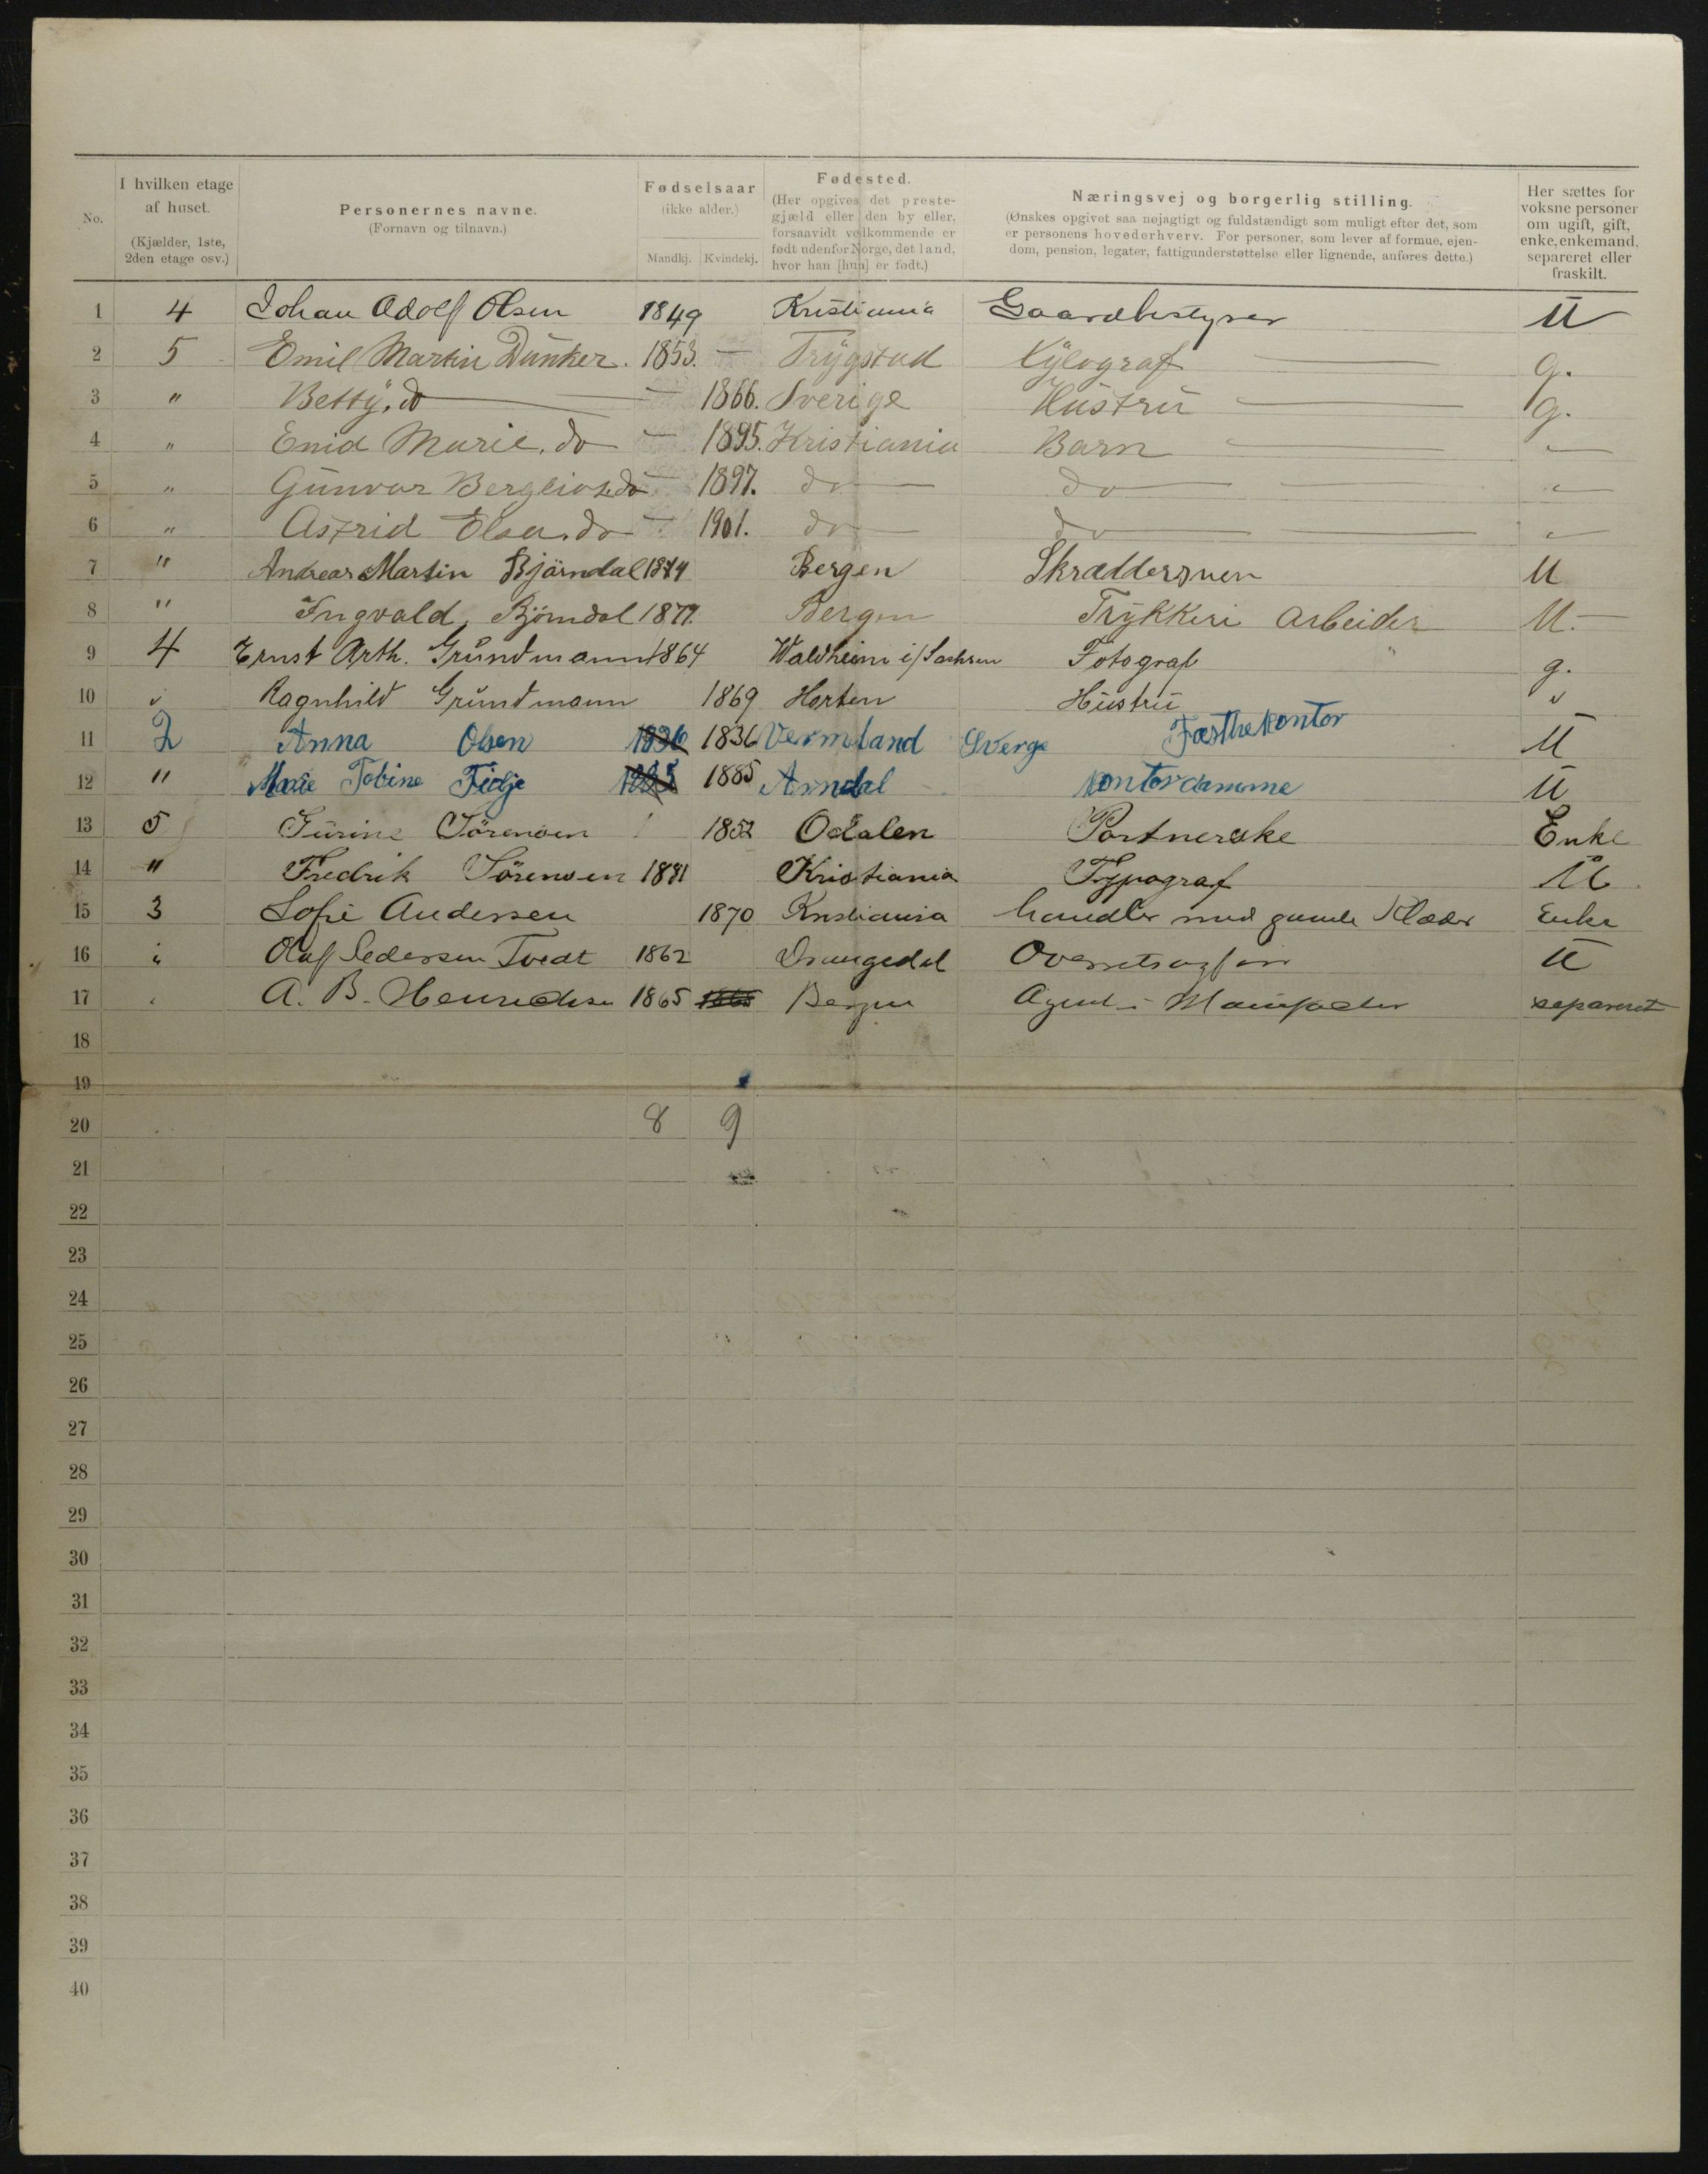 No.
I hvilken etage
af huset.
(Kjælder, 1ste,
2den etage osv.)
Personernes navne.
(Fornavn og tilnavn.)
Fødselsaar
(ikke alder.)
Mandkj. Kvindekj.
Fødested.
(Her opgives det preste-
gjæld eller den by eller,
forsaavidt vedkommende er
født udenfor Norge, det land,
hvor han [hun] er født.)
Næringsvej og borgerlig stilling.
(Ønskes opgivet saa nøjagtigt og fuldstændigt som muligt efter det, som
er personens hovederhverv. For personer, som lever af formue, ejen-
dom, pension, legater, fattigunderstøttelse eller lignende, anføres dette.)
Her sættes for
voksne personer
om ugift, gift,
enke, enkemand,
separeret eller
fraskilt.
1 4 Johan Adolf Olsen 1849 Kristiania Gaardbestyrer U
2 5 Emil Martin Dunker. 1853. — Trygstad Xylograf — g.
3 " Betty. do — — 1866. Sverige Hustru — g.
4 " Enid Marie. do — 1895. Kristiania Barn — —
5 " Gunvor Bergliot. do — 1897. do — do — — —
6 " Astrid Elsa. do — 1901. do — do — — —
7 " Andreas Martin Bjørndal 1874 Bergen Skræddersven U
8 " Ingvald Bjørndal 1879. Bergen Trykkeri Arbeider U. —
9 4 Ernst Arth. Grundmann 1864 Waldheim i/Sachsen Fotograf g.
10 " Ragnhild Grundmann 1869 Horten Hustru "
11 2 Anna Olsen 1836 1836 Vermland Sverge Fæsthekontor U
12 " Marie Tobine Fidje 1885 1885 Arndal Kontordamme U
13 5 Turine Sörensen 1852 Odalen Portnerske Enke
14 " Fredrik Sörensen 1881 Kristiania Typograf U
15 3 Sofie Andersen 1870 Kristiania handler med gamle Klæder Enke
16 " Olaf Pedersen Tvedt 1862 Drangedal Overretssagfører U
17 " A. B. Henrichsen 1865 1865 Bergen Agent i Manufactur separeret
18
19
20 8 9
21
22
23
24
25
26
27
28
29
30
31
32
33
34
35
36
37
38
39
40